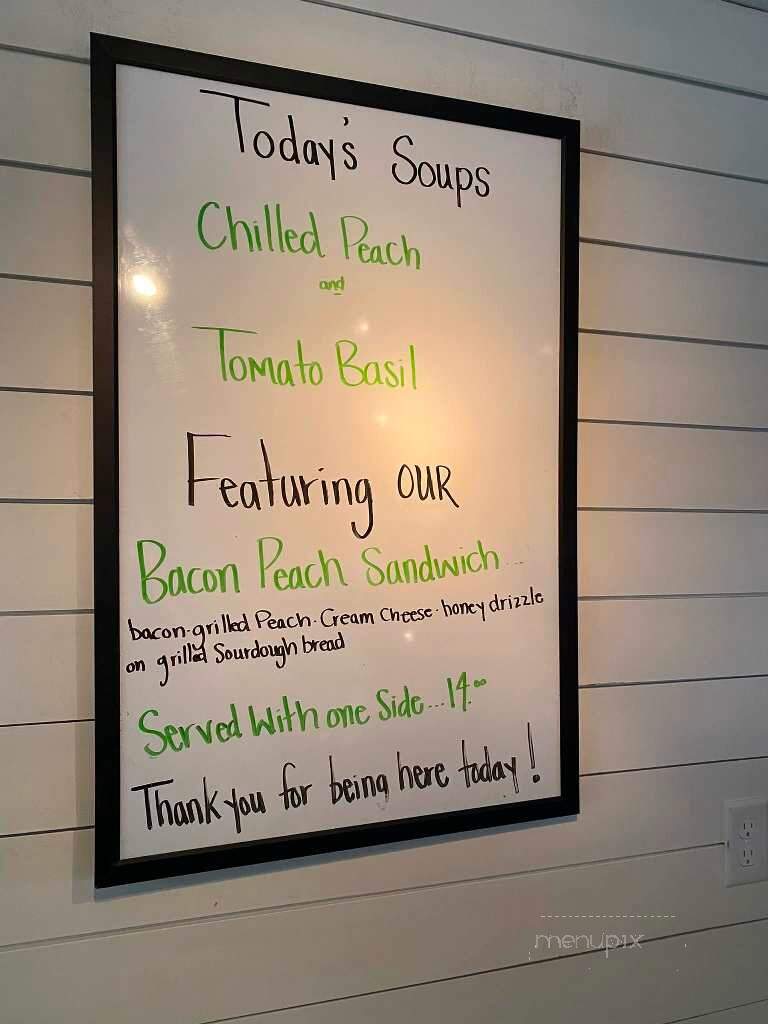 Today's Soups
Chilled Peach
and
Tomato Basil
Featuring OUR
Bacon Peach Sandwich...
bacon·grilled Peach·Cream Cheese·honey drizzle
on grilled Sourdough bread
Served With one Side...14.00
Thank you for being here today!
menupix